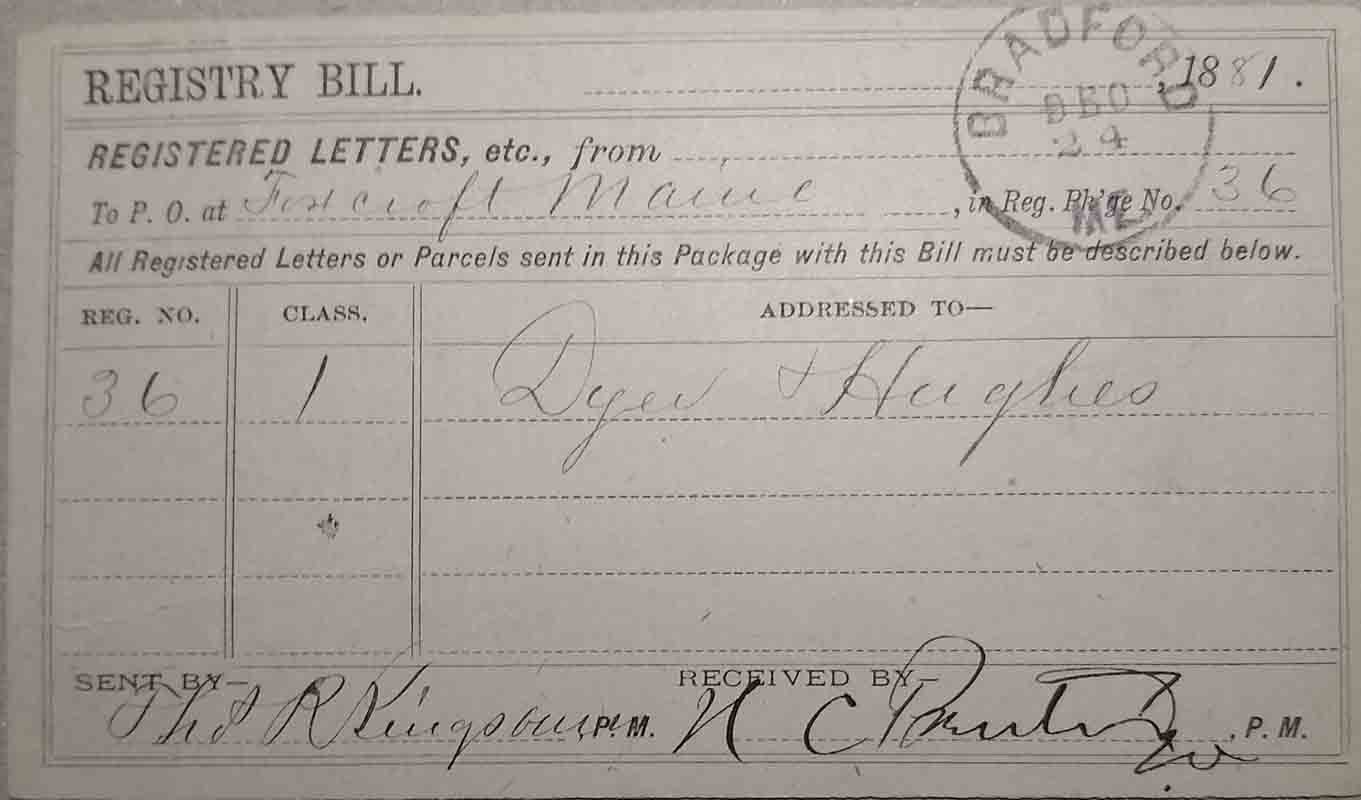 REGISTRY BILL. , 1881.
BRADFORD
DEC
24
ME
REGISTERED LETTERS, etc., from
To P. O. at Foxcroft Maine , in Reg. Pk'ge No. 36
All Registered Letters or Parcels sent in this Package with this Bill must be described below.
REG. NO. CLASS. ADDRESSED TO—
36 1 Dyer & Hughes
SENT BY— RECEIVED BY—
Thos R Kingsbury, P. M. N C , P. M.